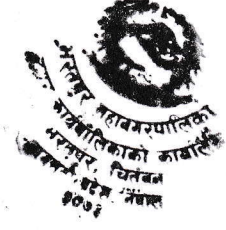 भरतपुर महानगरपालिका
कार्यपालिकाको कार्यालय
भरतपुर, चितवन
प्रदेश नेपाल
२०७३